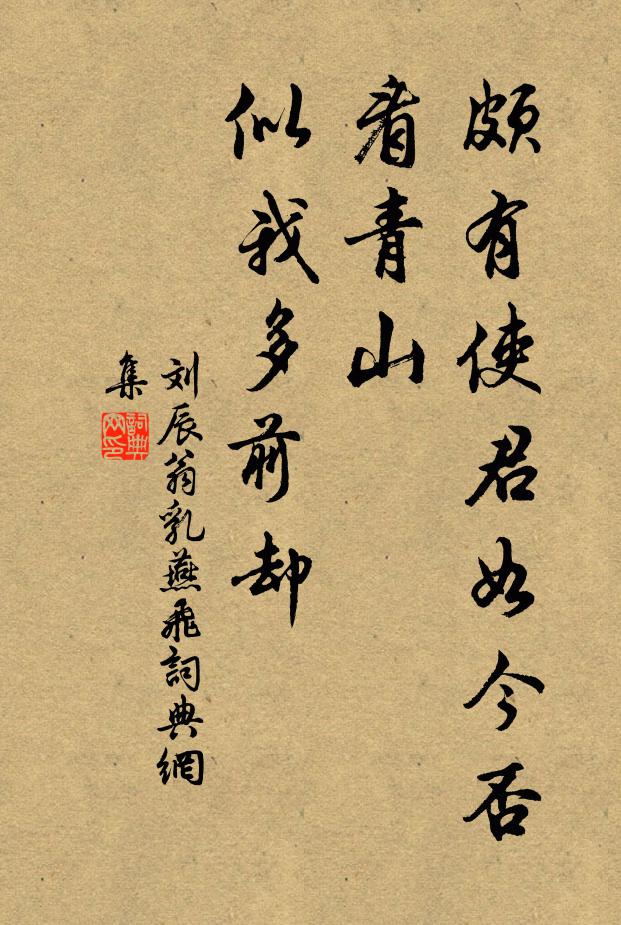 頗有使君如今否
看青山
似我多前却
刘辰翁乳燕飛詞典網
集
詞典
网印